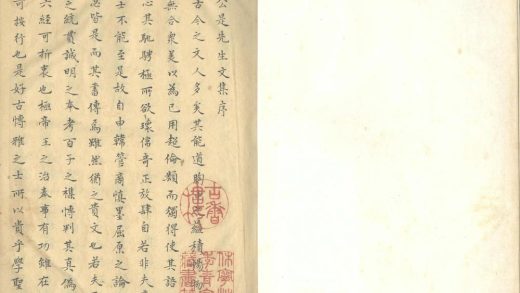 公是先生文集序
古今之文人多矣其能道
無合衆美以為己用超倫類而獨得使其語
心其馳騁極所欲瓌偉奇正放肆自若非夫
士不能至是故自由韓管商慎墨屈原之論
必皆是而其書傳焉雖然猶之貴文也若夫
之統貫誠明之本考百子之襍博判其真偽
六經可折衷也極帝王之治泰事有功雖在
可按行也是好古博雅之士所以貴乎學聖